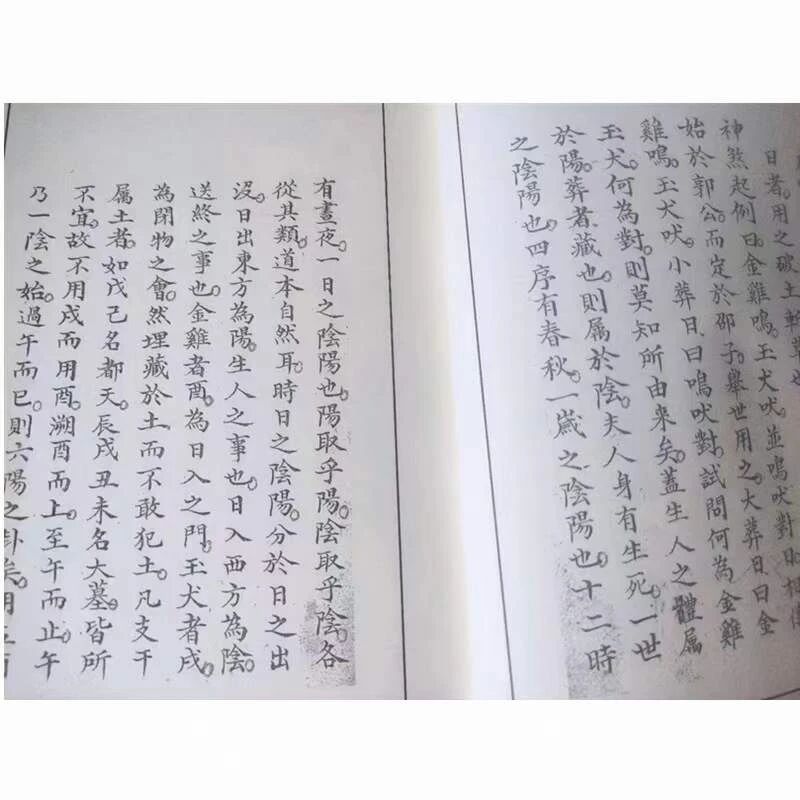 日者用之破土斬草也
神煞起例曰金雞鳴玉犬吠並鳴吠對日相傳
始於郭公而定於邵子舉世用之大葬日曰金
雞鳴玉犬吠小葬日曰鳴吠對試問何為金雞
玉犬何為對則莫知所由来矣蓋生人之體属
於陽葬者藏也則属於陰夫人身有生死一世
之陰陽也四序有春秋一歲之陰陽也十二時
有晝夜一日之陰陽也陽取乎陽陰取乎陰各
從其類道本自然耳時日之陰陽分於日之出
没日出東方為陽生人之事也日入西方為陰
送終之事也金雞者酉為日入之門玉犬者戌
為閉物之會然埋藏於土而不敢犯土凡支干
属土者如戊己名都天辰戌丑未名大墓皆所
不宜故不用戌而用酉溯酉而上至午而止午
乃一陰之始過午而巳則六陽之卦矣用